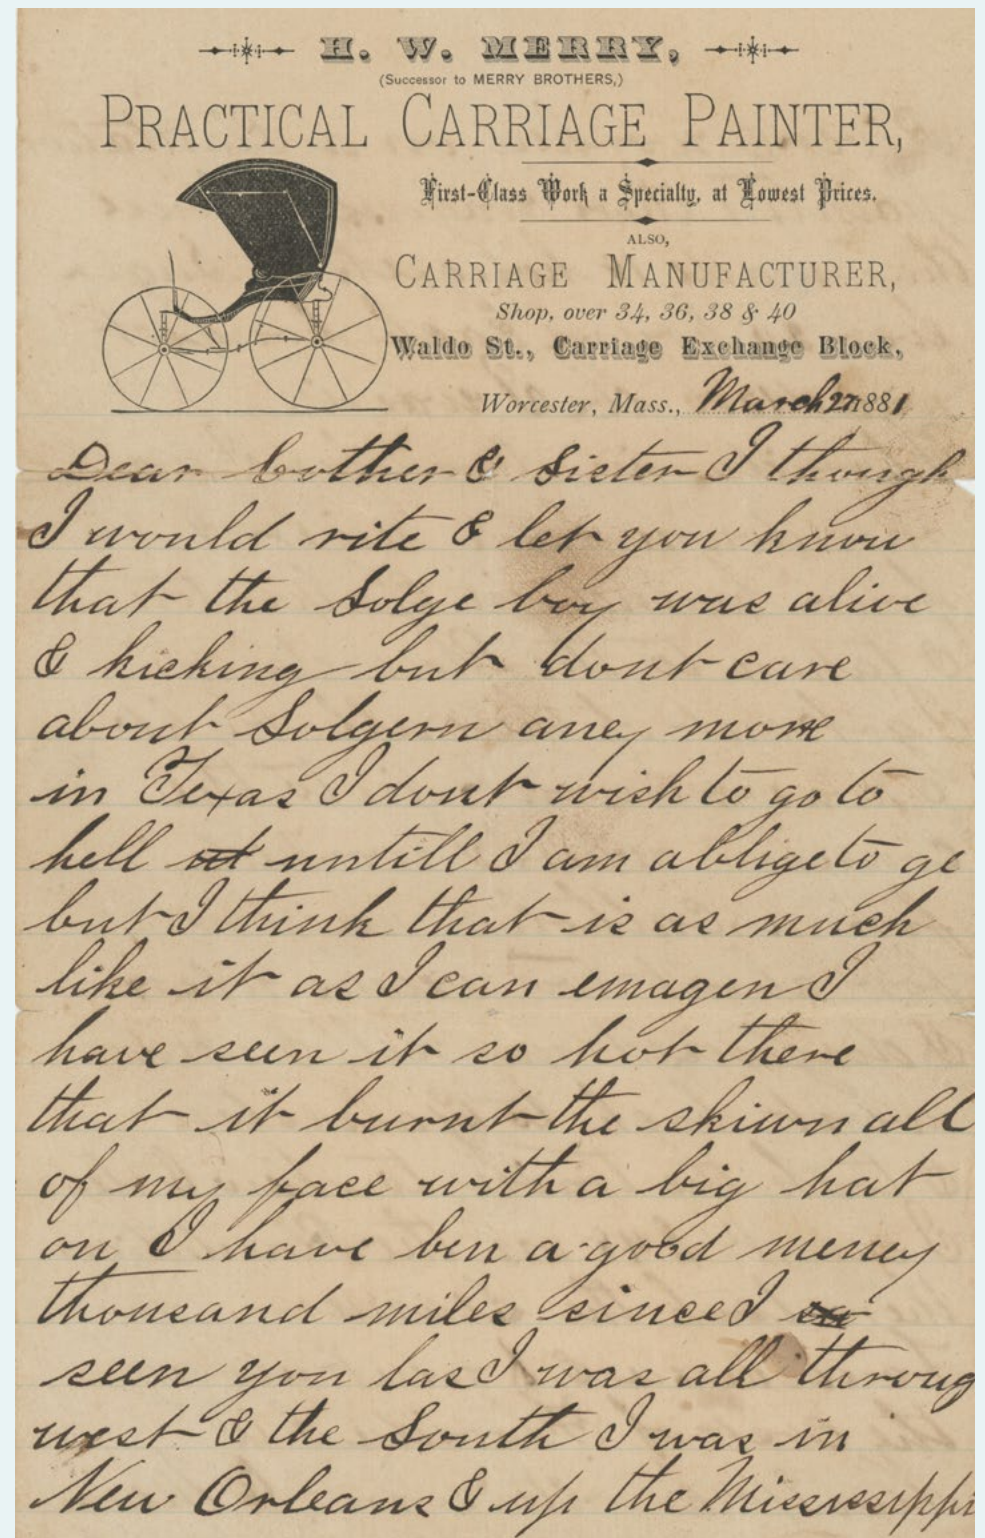 H. W. MERRY,
(Successor to MERRY BROTHERS,)
PRACTICAL CARRIAGE PAINTER,
First-Class Work a Specialty, at Lowest Prices.
ALSO,
CARRIAGE MANUFACTURER,
Shop, over 34, 36, 38 & 40
Waldo St., Carriage Exchange Block,
Worcester, Mass., March 27 1881
Dear bother & Sister I though
I would rite & let you know
that the Solge boy was alive
& kicking but dont care
about Solgern aney more
in Texas I dont wish to go to
hell at untill I am oblige to ge
but I think that is as much
like it as I can emagen I
have seen it so hot there
that it burnt the skiwn all
of my face with a big hat
on I have ben a good meney
thousand miles since I sa
seen you las I was all throug
west & the South I was in
New Orleans & up the Mississippi